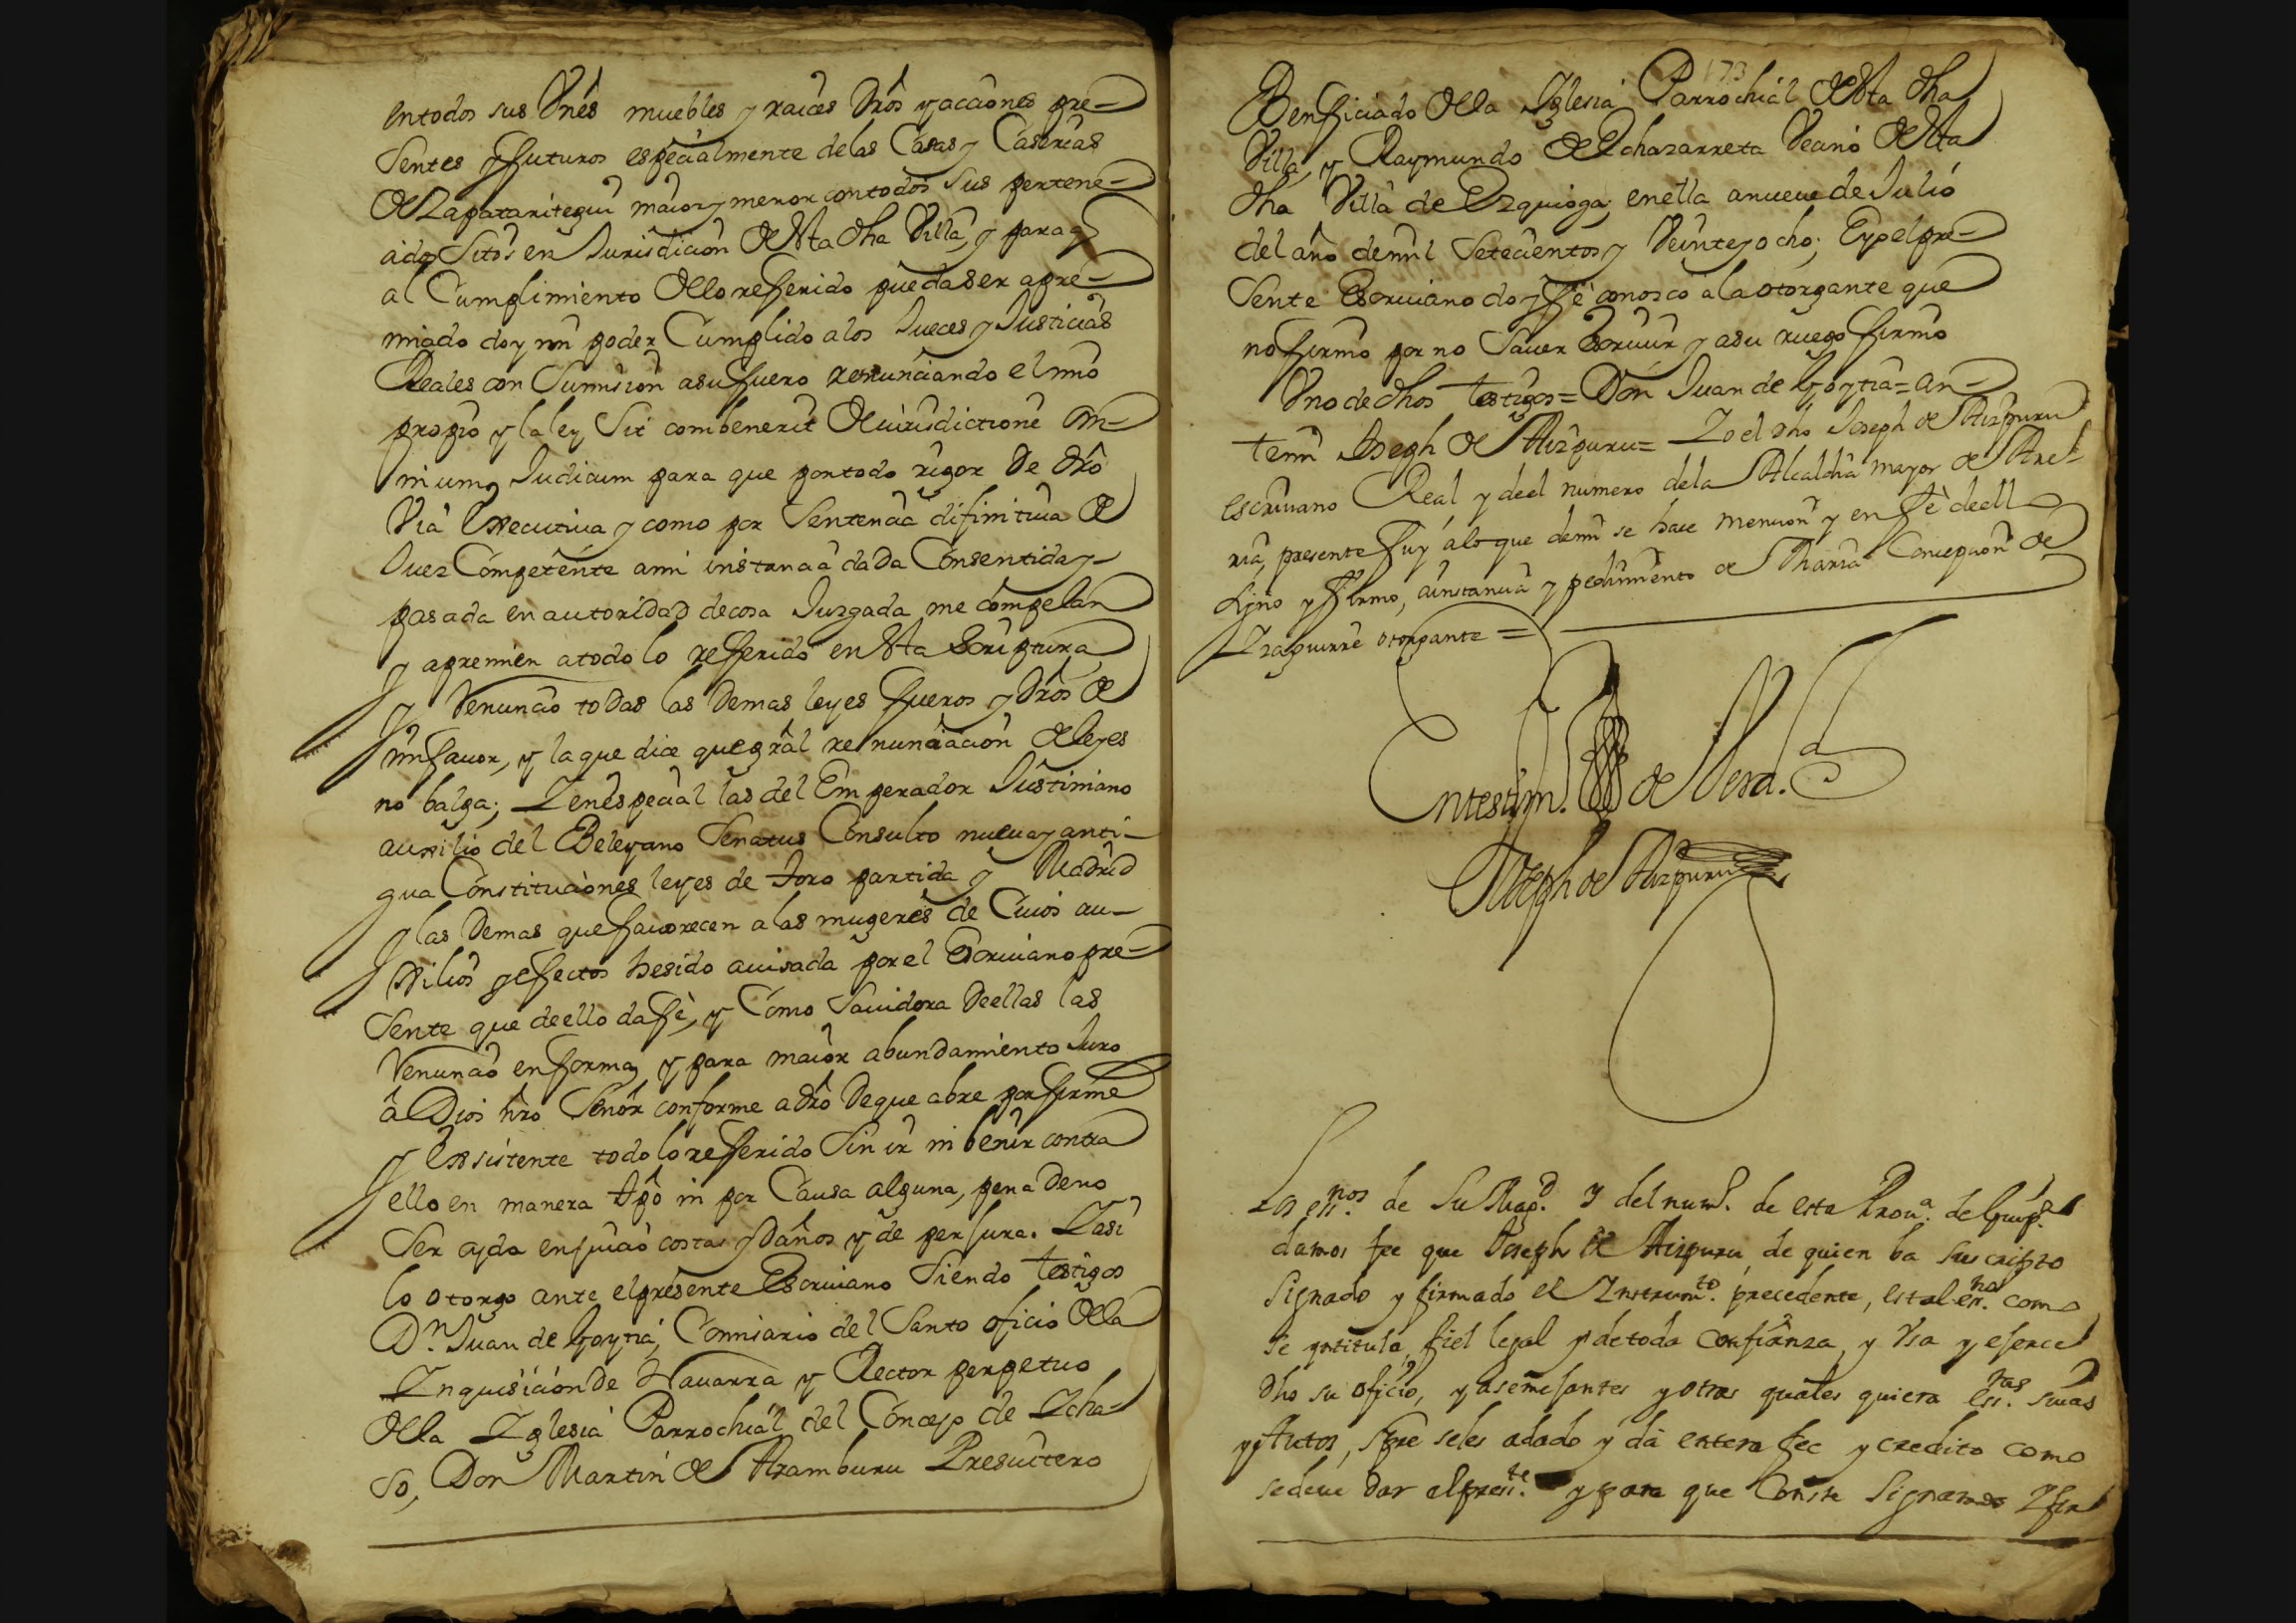 entodos sus Vnês muebles y raices drôs yacciones pre-
sentes y ffuturos especialmente delas Casas y Caserias
de Zapataritegui maior y menor contodos sus pertene-
cidos Sitos en Jurisdicion de esta dha Villa, y para q̃
al Cumplimiento dello refferido pueda ser apre-
miado doy mi poder Cumplido alos Jueces y Justicias
Reales con Sumision asu fuero renunciando el mio
propio y la ley Sit combenerit de iurisdictione om-
nium Judicum para que portodo rigor de drô
Via executiua y como por Sentencia difinitiua de
Juez Competente ami instancia dada Consentida y
pasada en autoridad decosa Juzgada me compelan
y apremien atodo lo refferido en esta Scriptura
y Renuncio todas las demas leyes fueros y drôs de
mi fauor, y la que dice que grâl renunciacion de leyes
no balga; Y en especial las del Emperador Justiniano
auxilio del Beleyano Senatus Consulto nueua y anti-
gua Constituciones leyes de toro partida y Madrid
y las demas que fauorecen a las mugeres de Cuios au-
xilios y effectos hesido auisada por el Escriuano pre-
sente que deello da ffè, y Como Sauidora deellas las
Renuncio en forma y para maior abundamiento Juro
â Dios nrô Señor conforme adrô deque abre por firme
y Exsistente todo lo refferido Sin ir ni benir contra
ello en manera tpô ni por Causa alguna, pena deno
Ser oyda en juicio costas y daños y de perjura. Y asi
lo otorgo ante el presente Escriuano Siendo testigos
Dn. Juan de Goytia, Comisario del Santo oficio dela
Inquisicion de Nauarra y Rector perpetuo
dela Iglesia Parrochial del Concejo de Icha-
so, Don Martin de Aramburu Presuitero
173
Benficiado dela Iglesia Parrochial de esta dha
Villa, y Raymundo de Echazarreta Vecino de esta
dha Villa de Ezquioga, enella anueue de Julio
del año demil Setecientos y Veinteyocho; Eyo el pre-
sente Escriuano doy ffè conosco ala otorgante que
no firmò por no Sauer Escriuir y asu ruego firmò
Vno de dhos testigos = Don Juan de Goytia = an-
temi Joseph de Aizpuru = Yo el dho Joseph de Aizpuru
escriuano Real y deel numero dela Alcaldia mayor de Are-
ria, presente fuy âlo que demi se hace mencion y en fè deello
signo y firmo, ainstancia y pedimiento de Maria Concepcion de
Izaguirre otorgante =
Entestim. de Verd.
Joseph de Aizpuru
Los essnos. de Su Magd. y del numº. de esta Proua. de Guipª.
damos fee que Joseph de Aizpuru, de quien ba suscripto
signado y firmado el Instrumto. precedente, es tal essno. como
se yntitula, fiel legal y detoda confianza, y Vsa y eferce
dho su oficio, y asemejantes y otras quales quiera essras. suias
y Autos, spre seles adado y dâ entera fee y credito como
sedeue dar alpresste. y para que Conste Signamos Y fir